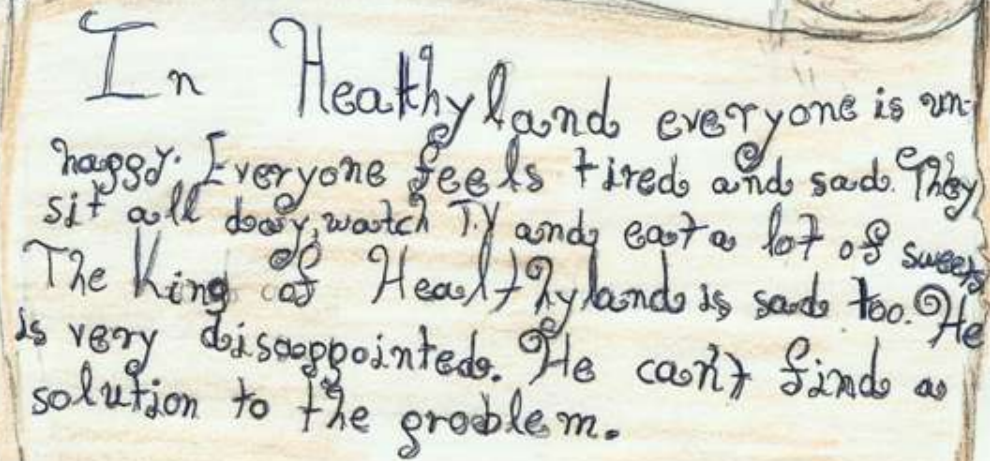 In Heathyland everyone is un-
happy. Everyone feels tired and sad. They
sit all day, watch T.V and eat a lot of sweets
The King of Healthyland is sad too. He
is very disappointed. He can't find a
solution to the problem.